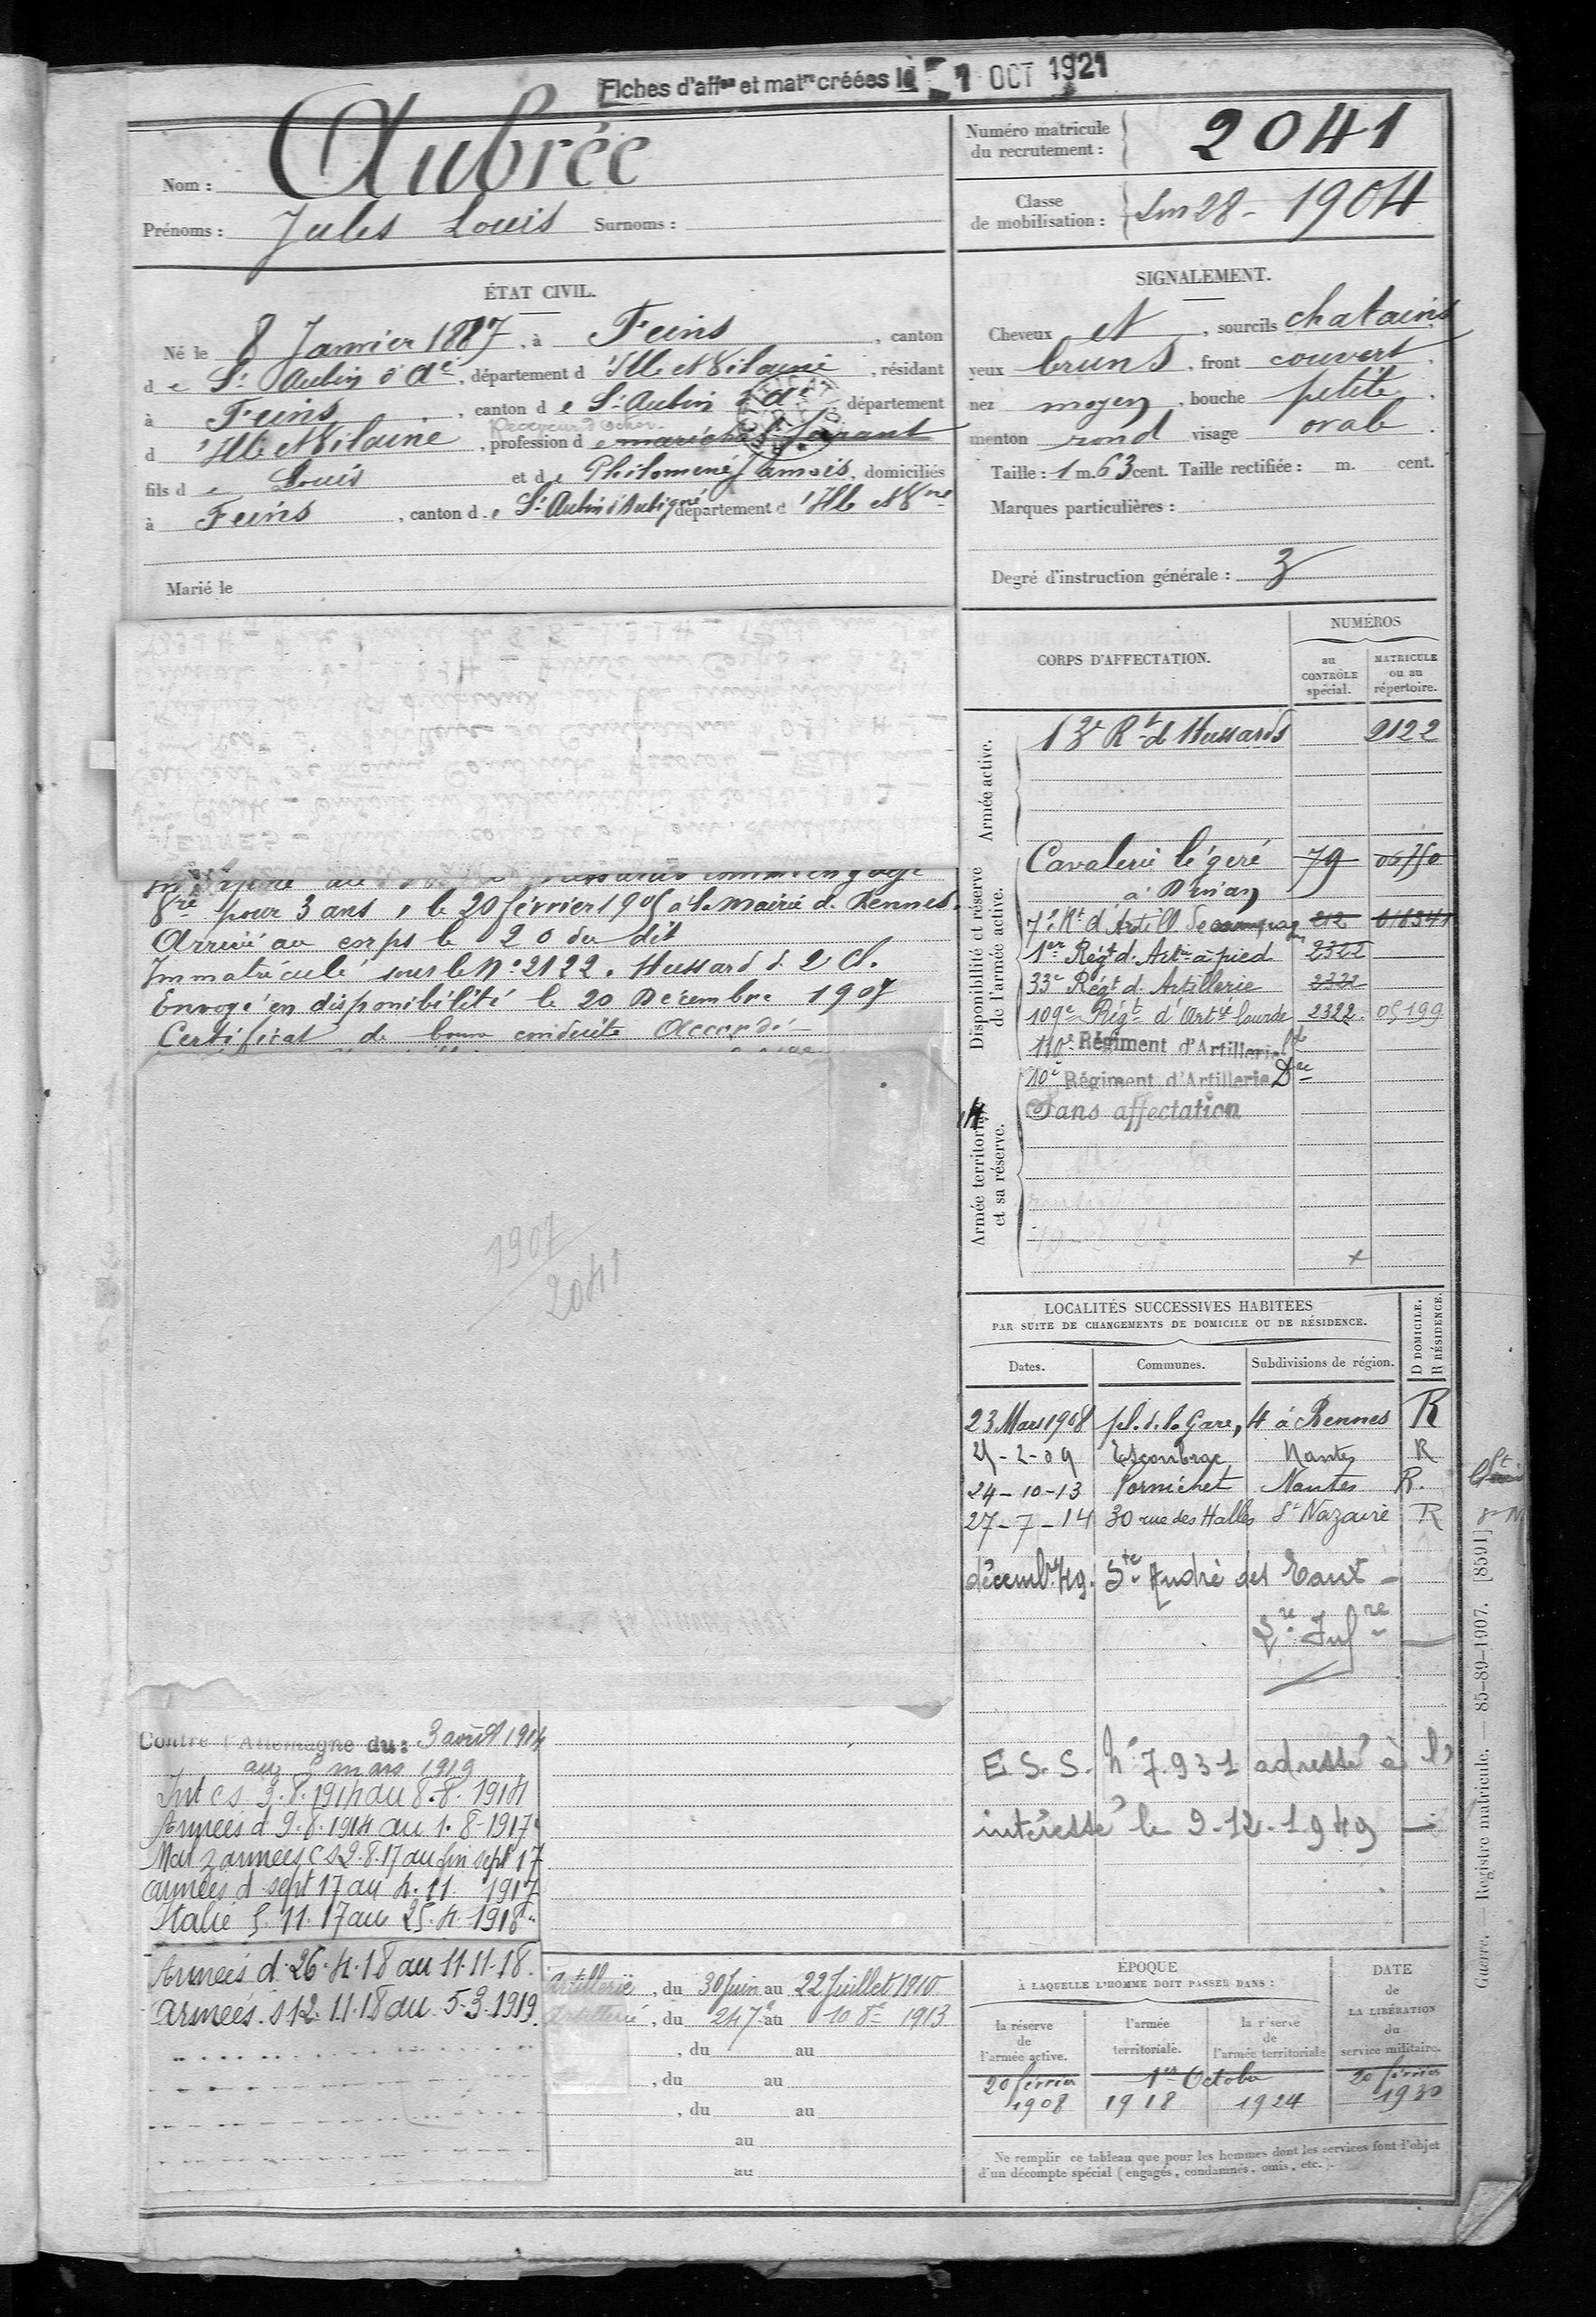 Fiches d'affon et matre créées le 1 OCT 1921
Nom : Aubrée
Prénoms : Jules Louis Surnoms :
Numéro matricule du recrutement : 2041
Classe de mobilisation : 1904
ÉTAT CIVIL.
Né le 8 Janvier 1887, à Feins, canton
de St Aubin d'Aé, département d'Ille et Vilaine, résidant
à Feins, canton de St Aubin d'Aé département
d'Ille et Vilaine, profession de maréchal ferant
fils de Louis et de Philomène Jamois, domiciliés
à Feins, canton de St Aubin d'Aubigné département d'Ille et Vne
Marié le
SIGNALEMENT.
Cheveux et, sourcils chatains
yeux bruns, front couvert,
nez moyen, bouche petite,
menton rond visage ovale.
Taille : 1 m. 63 cent. Taille rectifiée : m. cent.
Marques particulières :
Degré d'instruction générale : 3
pour 3 ans, le 20 février 1905 à la mairie de Rennes.
Arrivé au corps le 20 du dit
Immatriculé sous le No 2122. Hussard d 2 cl.
Envoyé en disponibilité le 20 Décembre 1907
Certificat de bonne conduite Accordé
1907
2041
CORPS D'AFFECTATION.
NUMÉROS
au CONTRÔLE spécial.
MATRICULE ou au répertoire.
Armée active.
13e Rt de Hussards 2122
Disponibilité et réserve de l'armée active.
Cavalerie légère 79 06750
à Dinan
7e Rt d'Artill de campagne 212
1er Régt d. Artie à pied 2322
33e Régt d. Artillerie 2322
109e Régt d'Artie lourde 2322 05199
110e Régiment d'Artillerie Lde
10e Régiment d'Artillerie Dre
Armée territoriale et sa réserve.
Sans affectation
LOCALITÉS SUCCESSIVES HABITÉES
PAR SUITE DE CHANGEMENTS DE DOMICILE OU DE RÉSIDENCE.
Dates. Communes. Subdivisions de région. D DOMICILE. R RÉSIDENCE.
23 Mars 1908 pl. d. la Gare, 4 à Rennes R
-2-09 Escoublac Nantes R
24-10-13 Pornichet Nantes R.
27-7-14 30 rue des Halles St Nazaire R
décemb. 49. Ste André des Eaux -
Lre Infre
E. S. S. No 7.931 adressé à l'
intéressé le 9-12-1949 -
Contre l'Allemagne du : 3 août 1914
au 5 mars 1919
Int cs 3.8.1914 au 8.8.1914
Armées d 9.8.1914 au 1.8-1917
armées cs 2.8.17 au fin sept 17
armées d sept 17 au 4.11.1917
Italie 5.11.17 au 25.4.1918
Armées d. 26.4.18 au 11.11.18.
armées. s 12.11.18 au 5-3-1919.
Artillerie, du 30 Juin au 22 Juillet 1910
Artillerie, du 24 7e au 10 8e 1913
, du au
, du au
, du au
au
au
ÉPOQUE
À LAQUELLE L'HOMME DOIT PASSER DANS :
la réserve de l'armée active.
l'armée territoriale.
la réserve de l'armée territoriale
DATE de LA LIBÉRATION du service militaire.
20 février 1908
1er Octobre
1918 1924
20 février 1930
Ne remplir ce tableau que pour les hommes dont les services font l'objet
d'un décompte spécial (engagés, condamnés, omis, etc.).
Guerre. — Registre matricule. — 85-89-1907. [8591]